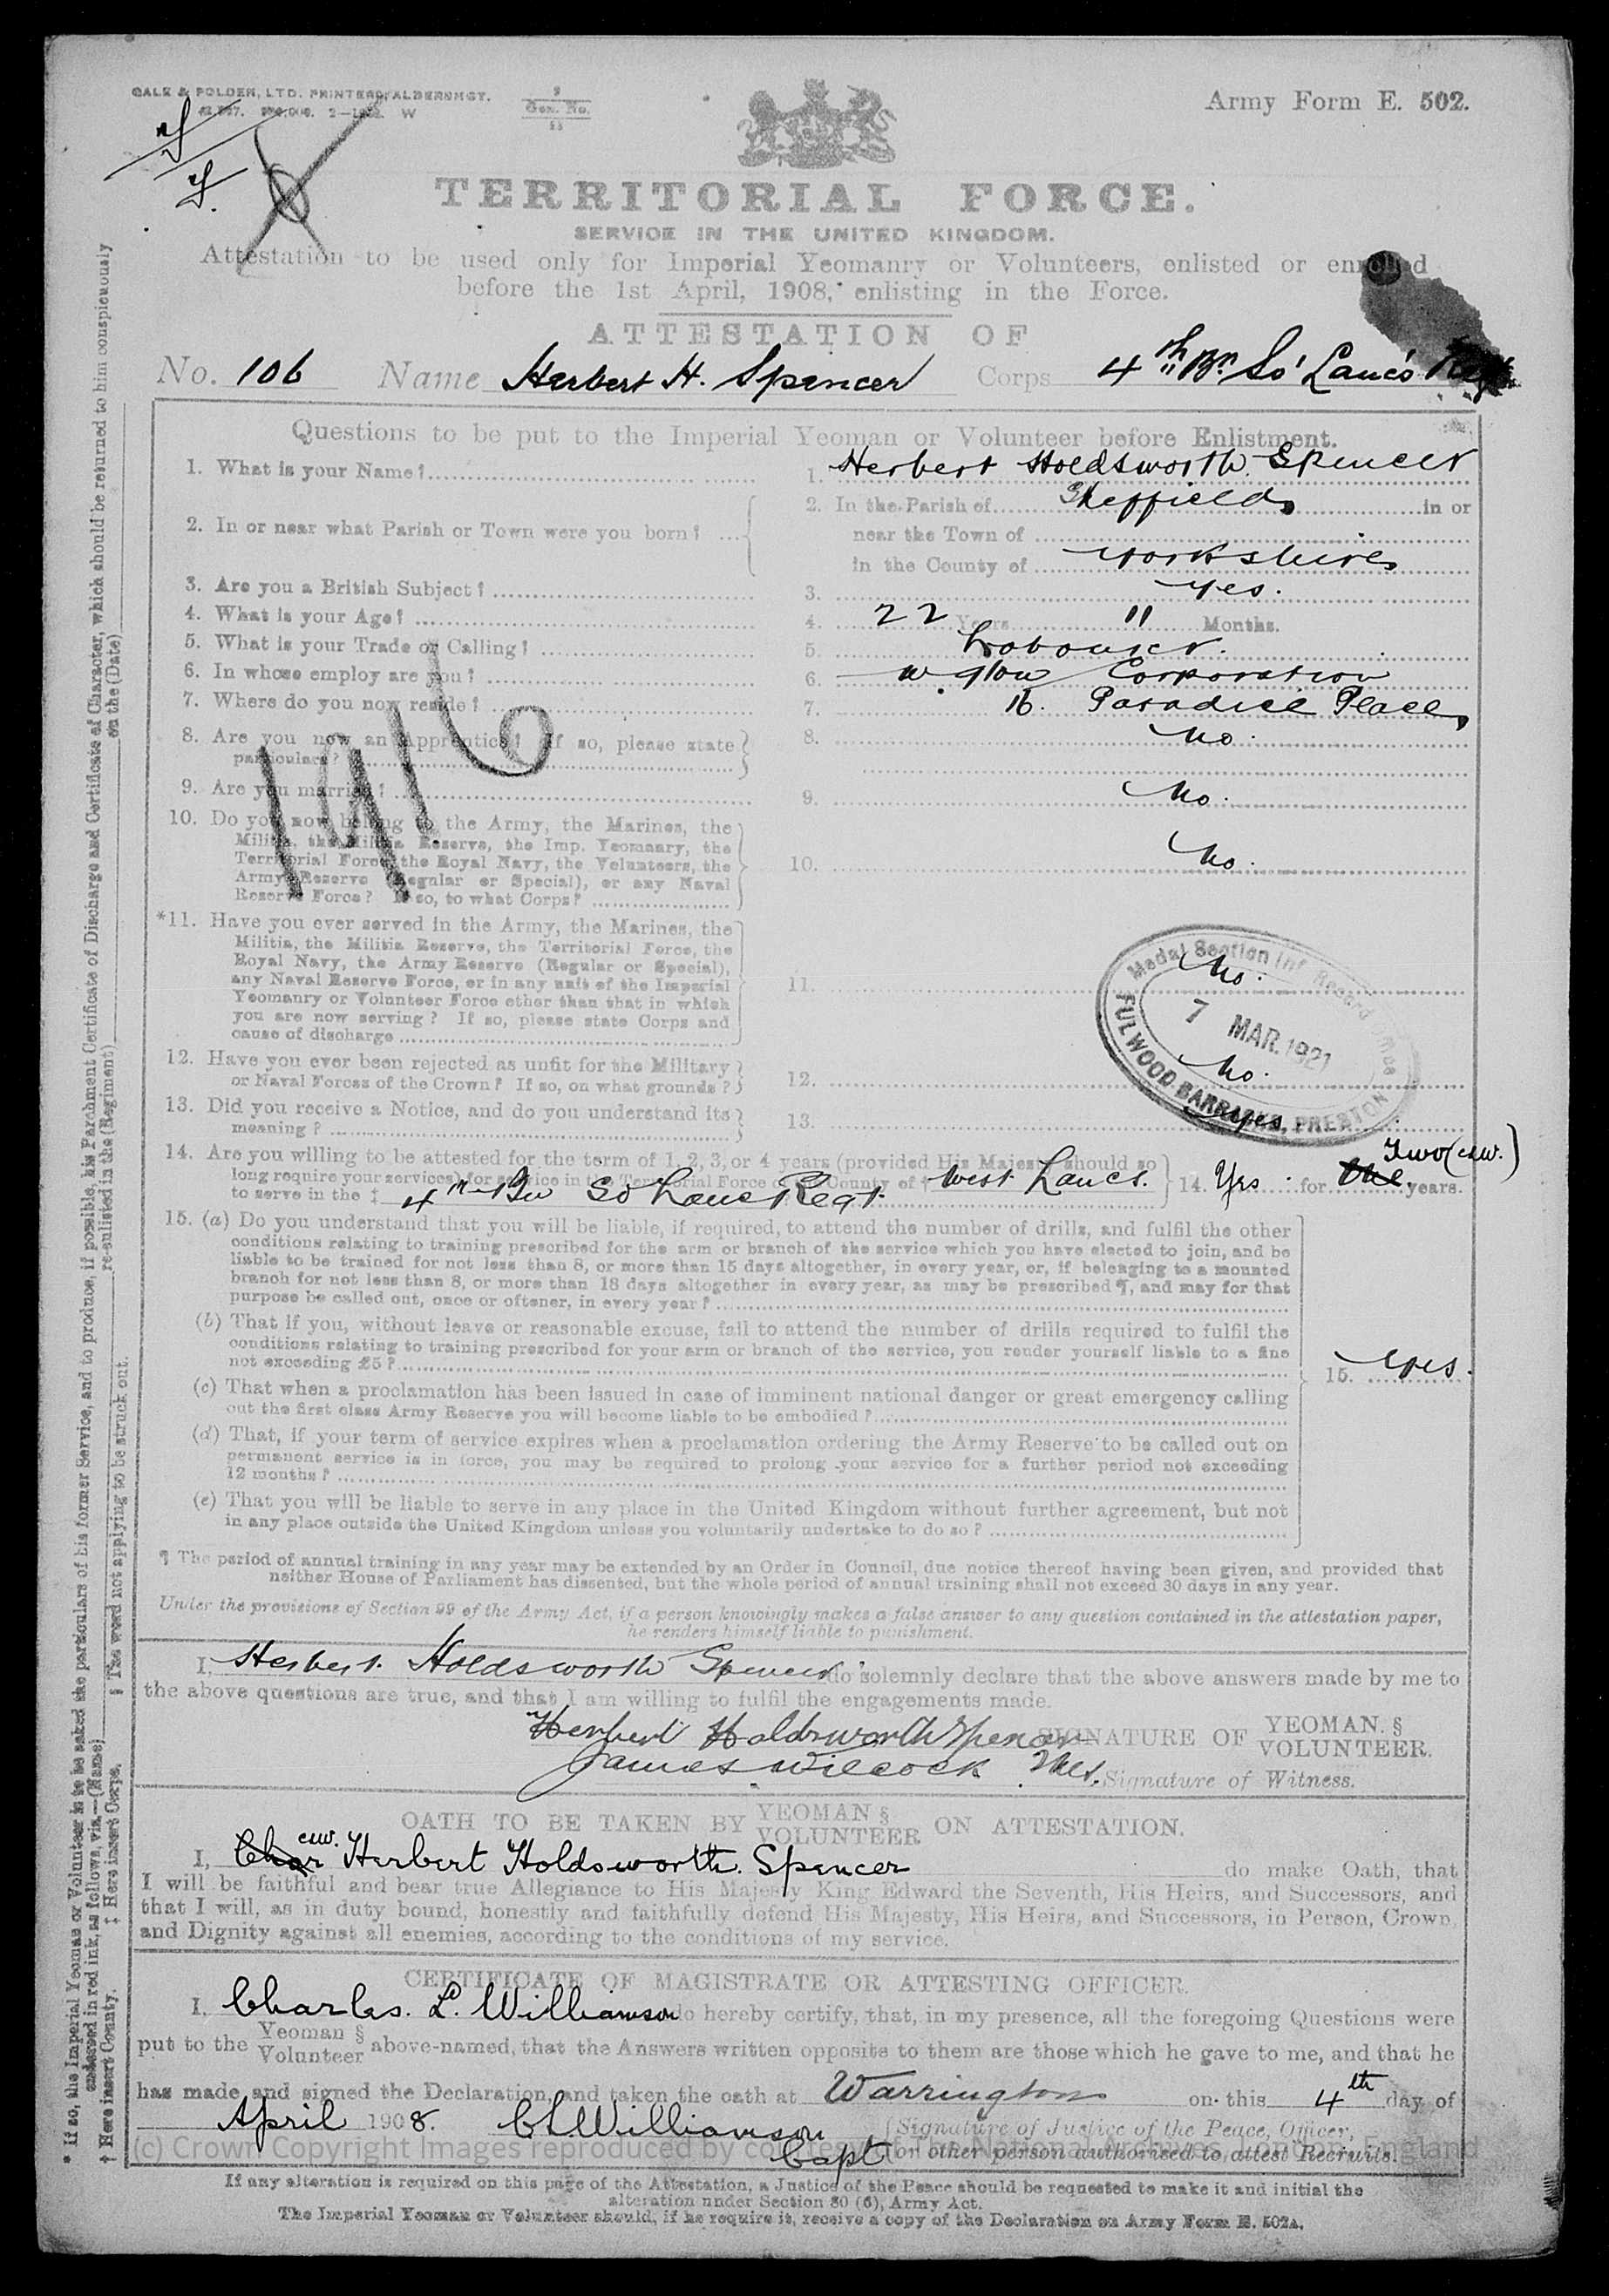 GALE & POLDEN, LTD. PRINTERS, ALDERSHOT.
Gen. No.
Army Form E. 502.
TERRITORIAL FORCE.
SERVICE IN THE UNITED KINGDOM.
Attestation to be used only for Imperial Yeomanry or Volunteers, enlisted or enrolled
before the 1st April, 1908, enlisting in the Force.
ATTESTATION OF
No. 106 Name Herbert H. Spencer Corps 4th Bn So' Lanc's Regt
Questions to be put to the Imperial Yeoman or Volunteer before Enlistment.
1. What is your Name? 1. Herbert Holdsworth Spencer
2. In or near what Parish or Town were you born? 2. In the Parish of Sheffield in or
near the Town of
in the County of Yorkshire
3. Are you a British Subject? 3. Yes.
4. What is your Age? 4. 22 Years 11 Months.
5. What is your Trade or Calling? 5. Labourer.
6. In whose employ are you? 6. Corporation
7. Where do you now reside? 7. 16. Paradise Place
8. Are you now an Apprentice? If so, please state 8. No.
particulars?
1916
9. Are you married? 9. No.
10. Do you now belong to the Army, the Marines, the
Militia, the Militia Reserve, the Imp. Yeomanry, the
Territorial Force, the Royal Navy, the Volunteers, the 10. No.
Army Reserve (Regular or Special), or any Naval
Reserve Force? If so, to what Corps?
*11. Have you ever served in the Army, the Marines, the
Militia, the Militia Reserve, the Territorial Force, the
Royal Navy, the Army Reserve (Regular or Special),
any Naval Reserve Force, or in any unit of the Imperial 11. No.
Yeomanry or Volunteer Force other than that in which
you are now serving? If so, please state Corps and
cause of discharge
Medal Section Inf. Record Office
7 MAR. 1921
FULWOOD BARRACKS, PRESTON
12. Have you ever been rejected as unfit for the Military
or Naval Forces of the Crown? If so, on what grounds? 12. No.
13. Did you receive a Notice, and do you understand its
meaning? 13. Yes
14. Are you willing to be attested for the term of 1, 2, 3, or 4 years (provided His Majesty should so Two (CLW.)
long require your services) for service in the Territorial Force of the County of † West Lancs. 14. Yes for One years.
to serve in the ‡ 4th Bn So Lanc Regt
15. (a) Do you understand that you will be liable, if required, to attend the number of drills, and fulfil the other
conditions relating to training prescribed for the arm or branch of the service which you have elected to join, and be
liable to be trained for not less than 8, or more than 15 days altogether, in every year, or, if belonging to a mounted
branch for not less than 8, or more than 18 days altogether in every year, as may be prescribed ¶, and may for that
purpose be called out, once or oftener, in every year?
(b) That if you, without leave or reasonable excuse, fail to attend the number of drills required to fulfil the
conditions relating to training prescribed for your arm or branch of the service, you render yourself liable to a fine
not exceeding £5? 15. Yes.
(c) That when a proclamation has been issued in case of imminent national danger or great emergency calling
out the first class Army Reserve you will become liable to be embodied?
(d) That, if your term of service expires when a proclamation ordering the Army Reserve to be called out on
permanent service is in force, you may be required to prolong your service for a further period not exceeding
12 months?
(e) That you will be liable to serve in any place in the United Kingdom without further agreement, but not
in any place outside the United Kingdom unless you voluntarily undertake to do so?
¶ The period of annual training in any year may be extended by an Order in Council, due notice thereof having been given, and provided that
neither House of Parliament has dissented, but the whole period of annual training shall not exceed 30 days in any year.
Under the provisions of Section 99 of the Army Act, if a person knowingly makes a false answer to any question contained in the attestation paper,
he renders himself liable to punishment.
I, Herbert Holdsworth Spencer do solemnly declare that the above answers made by me to
the above questions are true, and that I am willing to fulfil the engagements made.
Herbert Holdsworth Spencer SIGNATURE OF YEOMAN. § VOLUNTEER.
James Wilcock Signature of Witness.
OATH TO BE TAKEN BY YEOMAN § VOLUNTEER ON ATTESTATION.
I, Char CLW. Herbert Holdsworth Spencer do make Oath, that
I will be faithful and bear true Allegiance to His Majesty King Edward the Seventh, His Heirs, and Successors, and
that I will, as in duty bound, honestly and faithfully defend His Majesty, His Heirs, and Successors, in Person, Crown,
and Dignity against all enemies, according to the conditions of my service.
CERTIFICATE OF MAGISTRATE OR ATTESTING OFFICER.
I, Charles. L. Williamson do hereby certify, that, in my presence, all the foregoing Questions were
put to the Yeoman § Volunteer above-named, that the Answers written opposite to them are those which he gave to me, and that he
has made and signed the Declaration, and taken the oath at Warrington on this 4th day of
April 1908. CLWilliamson (Signature of Justice of the Peace, Officer,
Capt or other person authorised to attest Recruits.
(c) Crown Copyright Images reproduced by courtesy of The National Archives, London, England
If any alteration is required on this page of the Attestation, a Justice of the Peace should be requested to make it and initial the
alteration under Section 80 (6), Army Act.
The Imperial Yeoman or Volunteer should, if he require it, receive a copy of the Declaration on Army Form E. 502A.
* If so, the Imperial Yeoman or Volunteer is to be asked the particulars of his former Service, and to produce, if possible, his Parchment Certificate of Discharge and Certificate of Character, which should be returned to him conspicuously
endorsed in red ink, as follows, viz.—(Name) re-enlisted in the (Regiment) on the (Date)
† Here insert County. ‡ Here insert Corps. § The word not applying to be struck out.